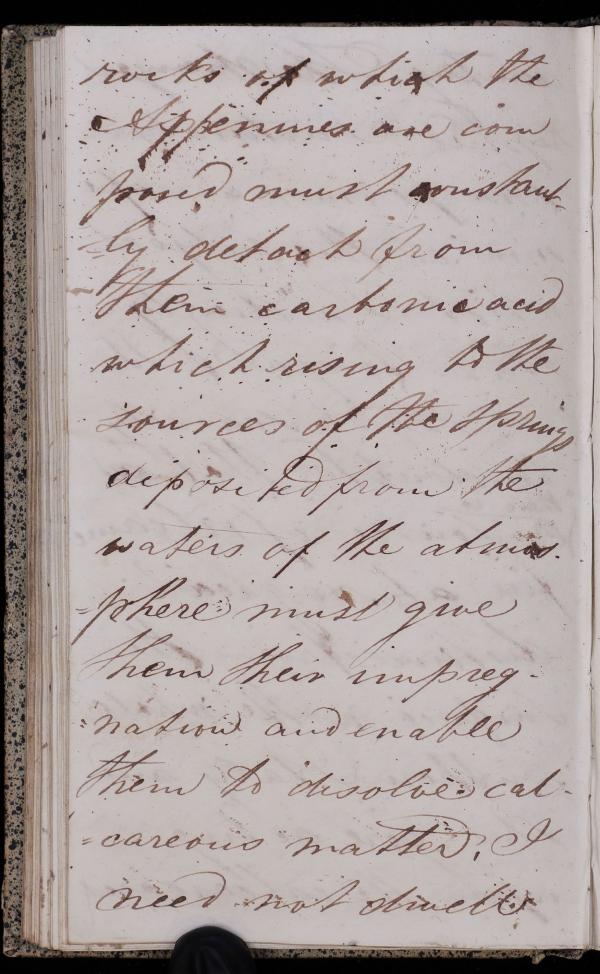 rocks of which the
Appennines are com
posed must constant-
-ly detach from
them carbonic acid
which rising to the
sources of the springs
deposited from the
waters of the atmos-
=phere must give
them their impreg-
=nation and enable
them to disolve cal-
=careous matter. I
need not dwell